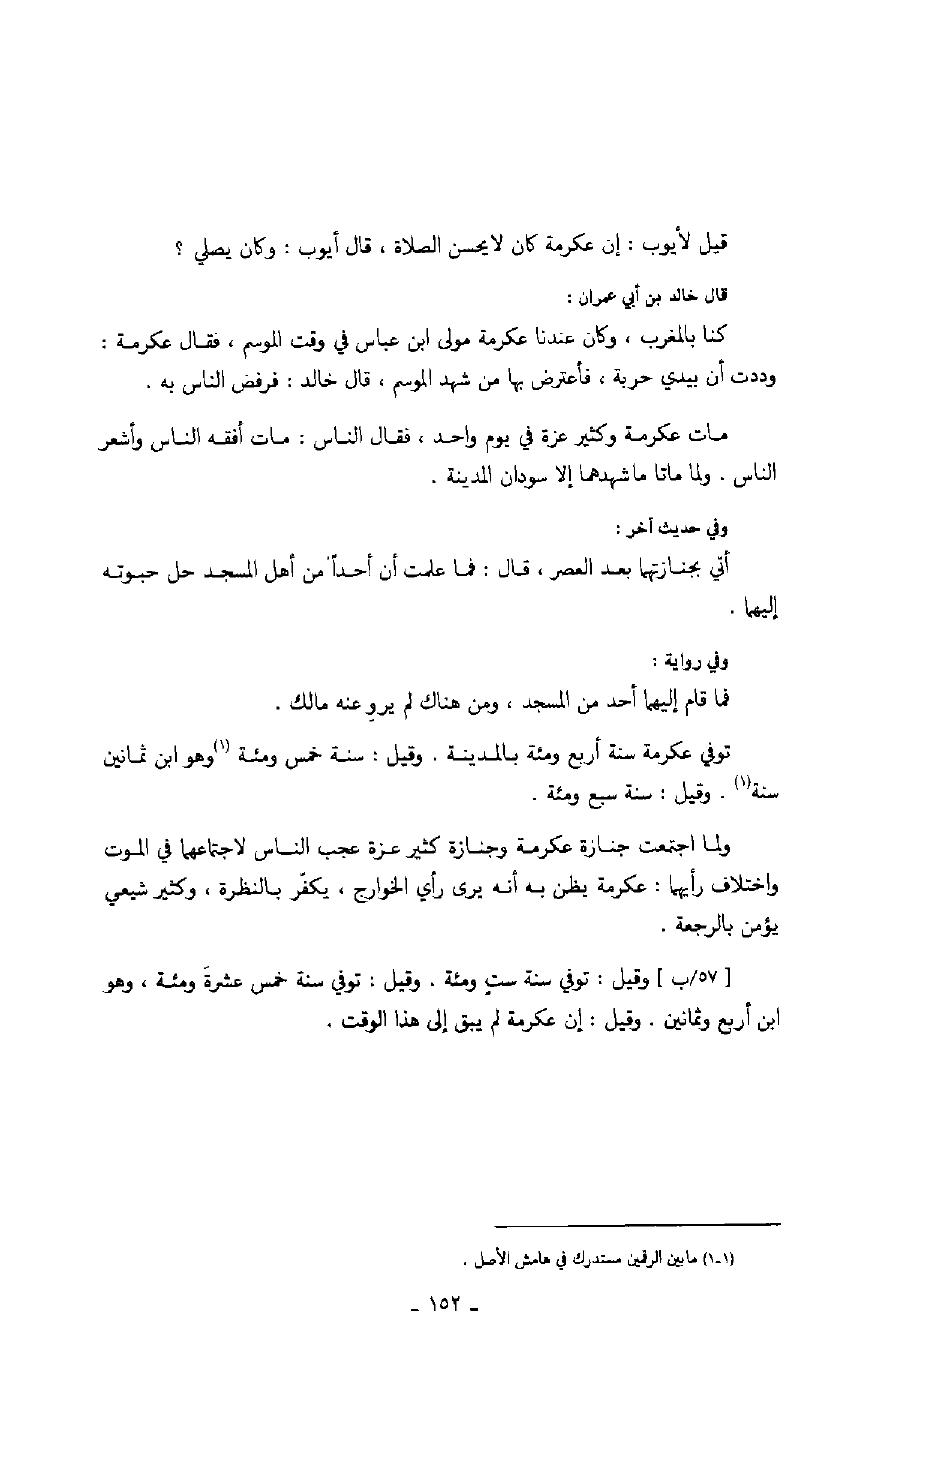 قيل لأيوب : إن عكرمة كان لا يحسن الصلاة ، قال أيوب : وكان يصلي ؟
قال خالد بن أبي عمران :
كنا بالمغرب ، وكان عندنا عكرمة مولى ابن عباس في وقت الموسم ، فقال عكرمة :
وددت أن بيدي حربة ، فأعترض بها من شهد الموسم ، قال خالد : فرفض الناس به .
مات عكرمة وكثير عزة في يوم واحد ، فقال الناس : مات أفقه الناس وأشعر
الناس . ولما ماتا ماشهدهما إلا سودان المدينة .
وفي حديث آخر :
أتي بجنازتهما بعد العصر ، قال : فما علمت أن أحداً من أهل المسجد حل حبوته
إليهما .
وفي رواية :
فما قام إليهما أحد من المسجد ، ومن هناك لم يروِ عنه مالك .
توفي عكرمة سنة أربع ومئة بالمدينة . وقيل : سنة خمس ومئة (١)وهو ابن ثمانين
سنة(١) . وقيل : سنة سبع ومئة .
ولما اجتمعت جنازة عكرمة وجنازة كثير عزة عجب الناس لاجتماعهما في الموت
واختلاف رأيهما : عكرمة يظن به أنه يرى رأي الخوارج ، يكفّر بالنظرة ، وكثير شيعي
يؤمن بالرجعة .
[ ٥٧/ب ] وقيل : توفي سنة ستٍ ومئة . وقيل : توفي سنة خمس عشرةَ ومئة ، وهو
ابن أربع وثمانين . وقيل : إن عكرمة لم يبق إلى هذا الوقت .
(١-١) مابين الرقمين مستدرك في هامش الأصل .
- ١٥٢ -